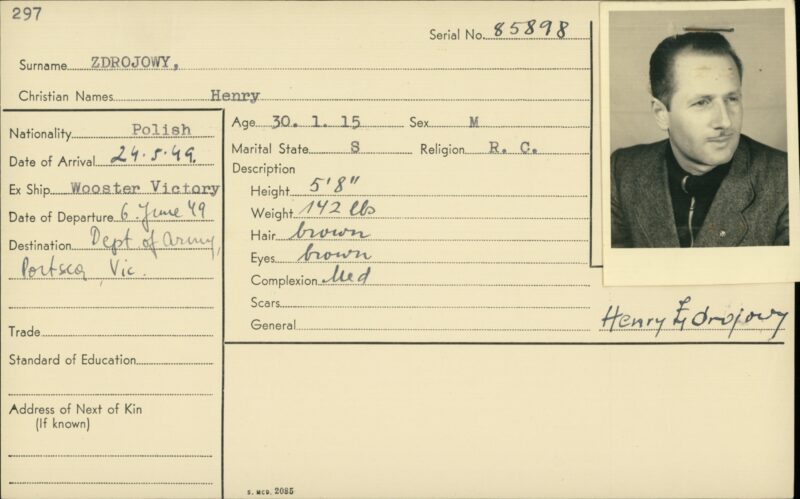 297
Serial No. 85898
Surname ZDROJOWY,
Christian Names Henry
Nationality Polish
Date of Arrival 24.5.49.
Ex Ship Wooster Victory
Date of Departure 6 June 49
Destination Dept of Army,
Portsea, Vic.
Trade
Standard of Education
Address of Next of Kin
(If known)
Age 30. 1. 15 Sex M
Marital State S Religion R. C.
Description
Height 5'8"
Weight 142 lbs
Hair brown
Eyes brown
Complexion Med
Scars
General
Henry Zdrojowy
S. MCD. 2085